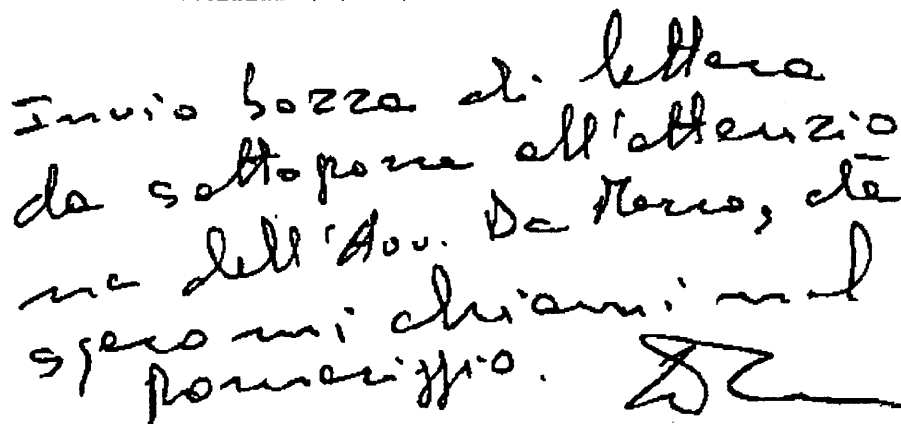 Invio bozza di lettera
da sottoporre all'attenzio
ne dell'Avv. De Marco, che
spero mi chiami nel
pomeriggio.